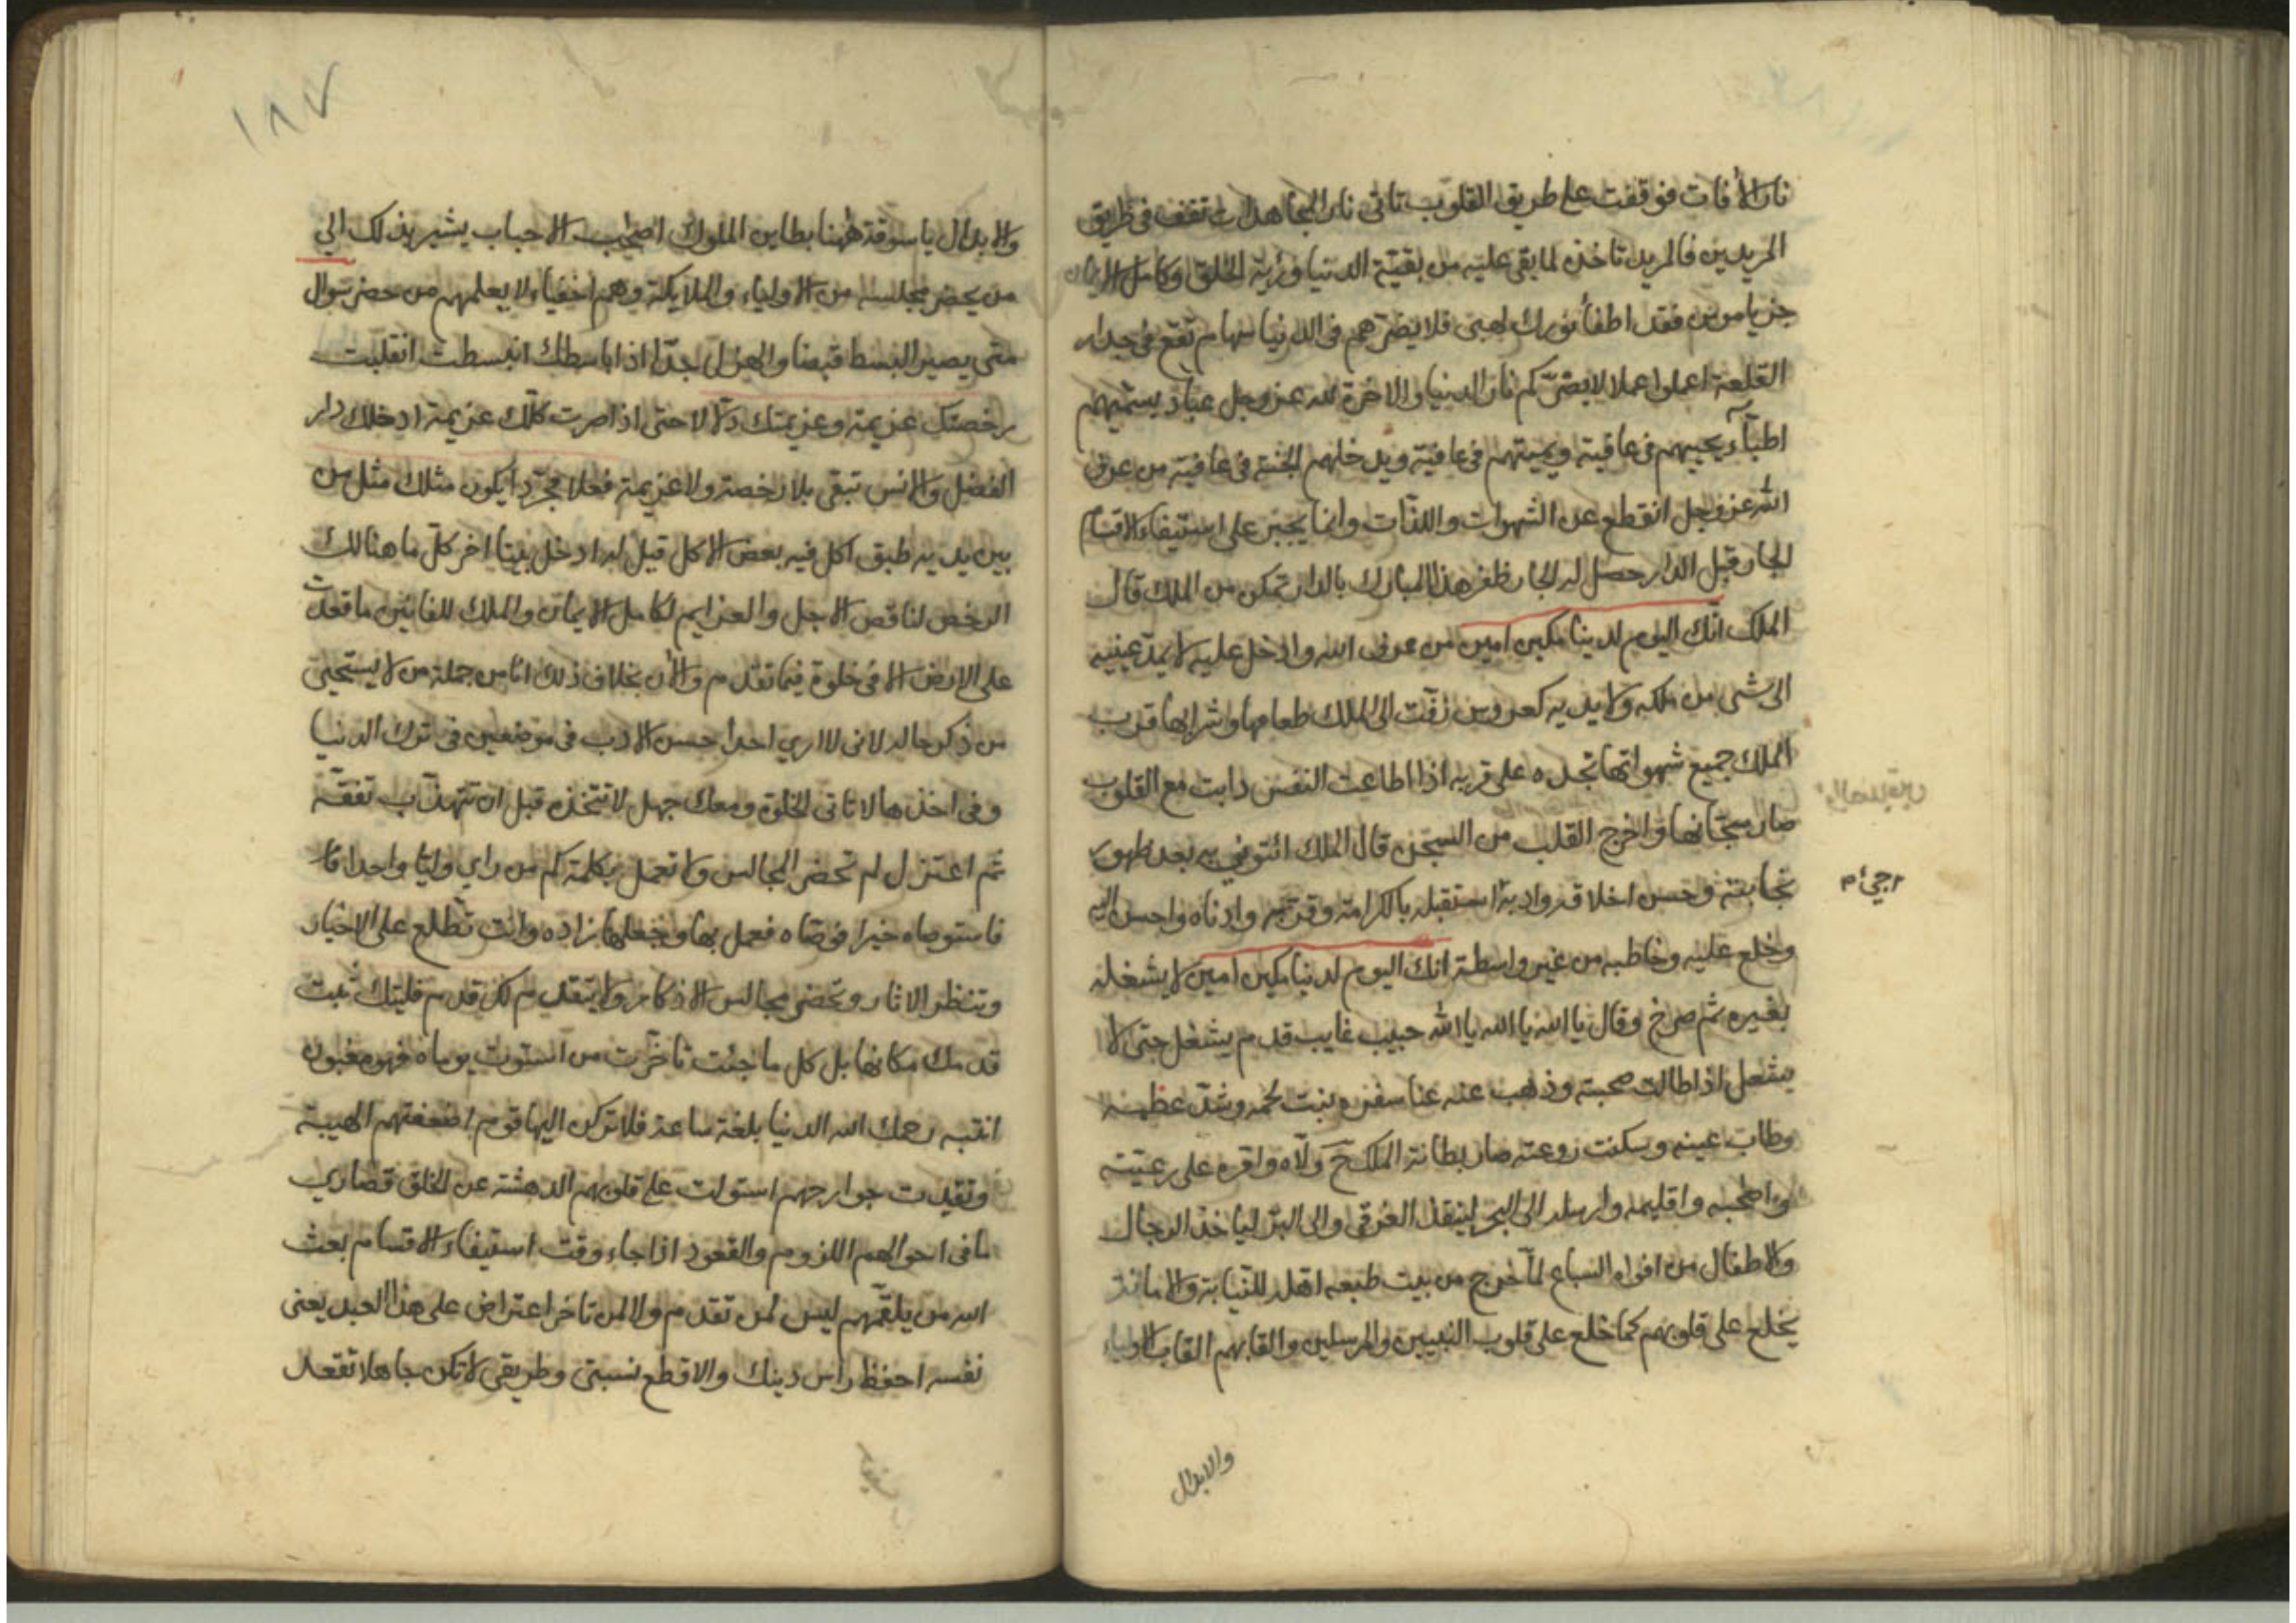 نار الآفات فوقفت على طريق القلوب تاتى نار المجاهدات تقف فى طريق
المريدين فالمريد تاخذ لما بقى عليه من بقية الدنيا ورؤية الخلق وكامل الايمان
جز يا مومن فقد اطفأ نورك لهبى فلا يضرهم فى الدنيا سهام تقع فى جدار
القلعة اعملوا عملا لا يضركم نار الدنيا والاخرة لله عز وجل عباد يسميهم
اطبآء يحييهم فى عافية ويميتهم فى عافية ويدخلهم الجنة فى عافية من عرف
الله عز وجل انقطع عن الشهوات واللذات وانما يجبر على استيفاء الاقسام
الجار قبل الدار حصل له الجار ظفر هذا المبارك بالدار تمكن من الملك قال
الملك انك اليوم لدينا مكين امين من عرف الله وادخل عليه لا يمد عينيه
الى شى من ملكه ولا يديه كعروس زفت الى الملك طعامها وشرابها قرب
الملك جميع شهواتها تجده على قربه اذا اطاعت النفس ذابت مع القلوب
صار سجانها واخرج القلب من السجن قال الملك ائتونى به بعد ظهور
نجابته وحسن اخلاقه وادبه استقبله بالكرامة وقربه وادناه واحسن اليه
وخلع عليه وخاطبه من غير واسطة انك اليوم لدينا مكين امين لا يشغله
بغيره ثم صرخ وقال يا الله يا الله يا الله حبيب غايب قدم يشغل حتى لا
يشغل اذا طالت صحبته وذهب عنه عنا سفره ونبت لحمه وشد عظمه
وطاب عينه وسكنت روعته صار بطانة الملك ح ولاه وامره على رعيته
واصحبه واقليمه وارسله الى البحر لينقذ الغرقى والى البر لياخذ الرجال
والاطفال من افواه السباع لما خرج من بيت طبعه اهله للنيابة والامانة
يخلع على قلوبهم كما خلع على قلوب النبيين والمرسلين والقابهم القاب الاولياء
والابدال
١٨٧
والابدال يا سوقة ههنا بطاين الملوك اصحاب الاحباب يشير بذلك الى
من يحضر مجلسه من الاولياء والملايكة وهم اخفياء لا يعلمهم من حضر سوال
متى يصير البسط قبضا والهزل جدا اذا باسطك انبسطت انقلبت
رخصتك عزيمة وعزيمتك دلالا حتى اذا صرت كلك عزيمة ادخلك دار
الفضل والانس تبقى بلا رخصة ولا عزيمة فعلا مجردا يكون مثلك مثل من
بين يديه طبق اكل فيه بعض الاكل قيل له ادخل بيتا اخر كل ما هنالك
الرخص لناقص الاجل والعزايم لكامل الايمان والملك للفانين ما قعدت
على الارض الا فى خلوة فيما تقدم والآن بخلاف ذلك انا من جملة من لا يستحيى
من ذكر حاله لانى لا ارى احدا حسن الادب فى موضعين فى ترك الدنيا
وفى اخذها لا تاتى الخلق ومعك جهل لا تتخذه قبل ان تتهذب تفقه
ثم اعتزل لم تحضر المجالس ولا تعمل بكلمة كم من راى وليا واحدا قا
فاستوصاه خيرا فوصاه فعمل بها وجعلها زاده وانت تطلع على الاخبار
وتنظر الاثار وتحضر مجالس الاذكار ولا يتقدم لك قدم فليتك ثبت
قدمك مكانها بل كل ما جئت تاخرت من استوت يوماه فهو مغبون
انتبه رحمك الله الدنيا بلغة ساعة فلا تركن اليها قوم اضعفتهم الهيبة
وتقيدت جوارحهم استولت على قلوبهم الدهشة عن الخلق قصارى
ما فى احوالهم اللزوم والقعود اذا جاء وقت استيفاء الاقسام بعث
الله من يلقمهم ليس لمن تقدم ولا لمن تاخر اعتراض على هذا العبد يعنى
نفسه احفظ راس دينك والا قطع نسبتى وطريقى لا تكن جاهلا تقعد